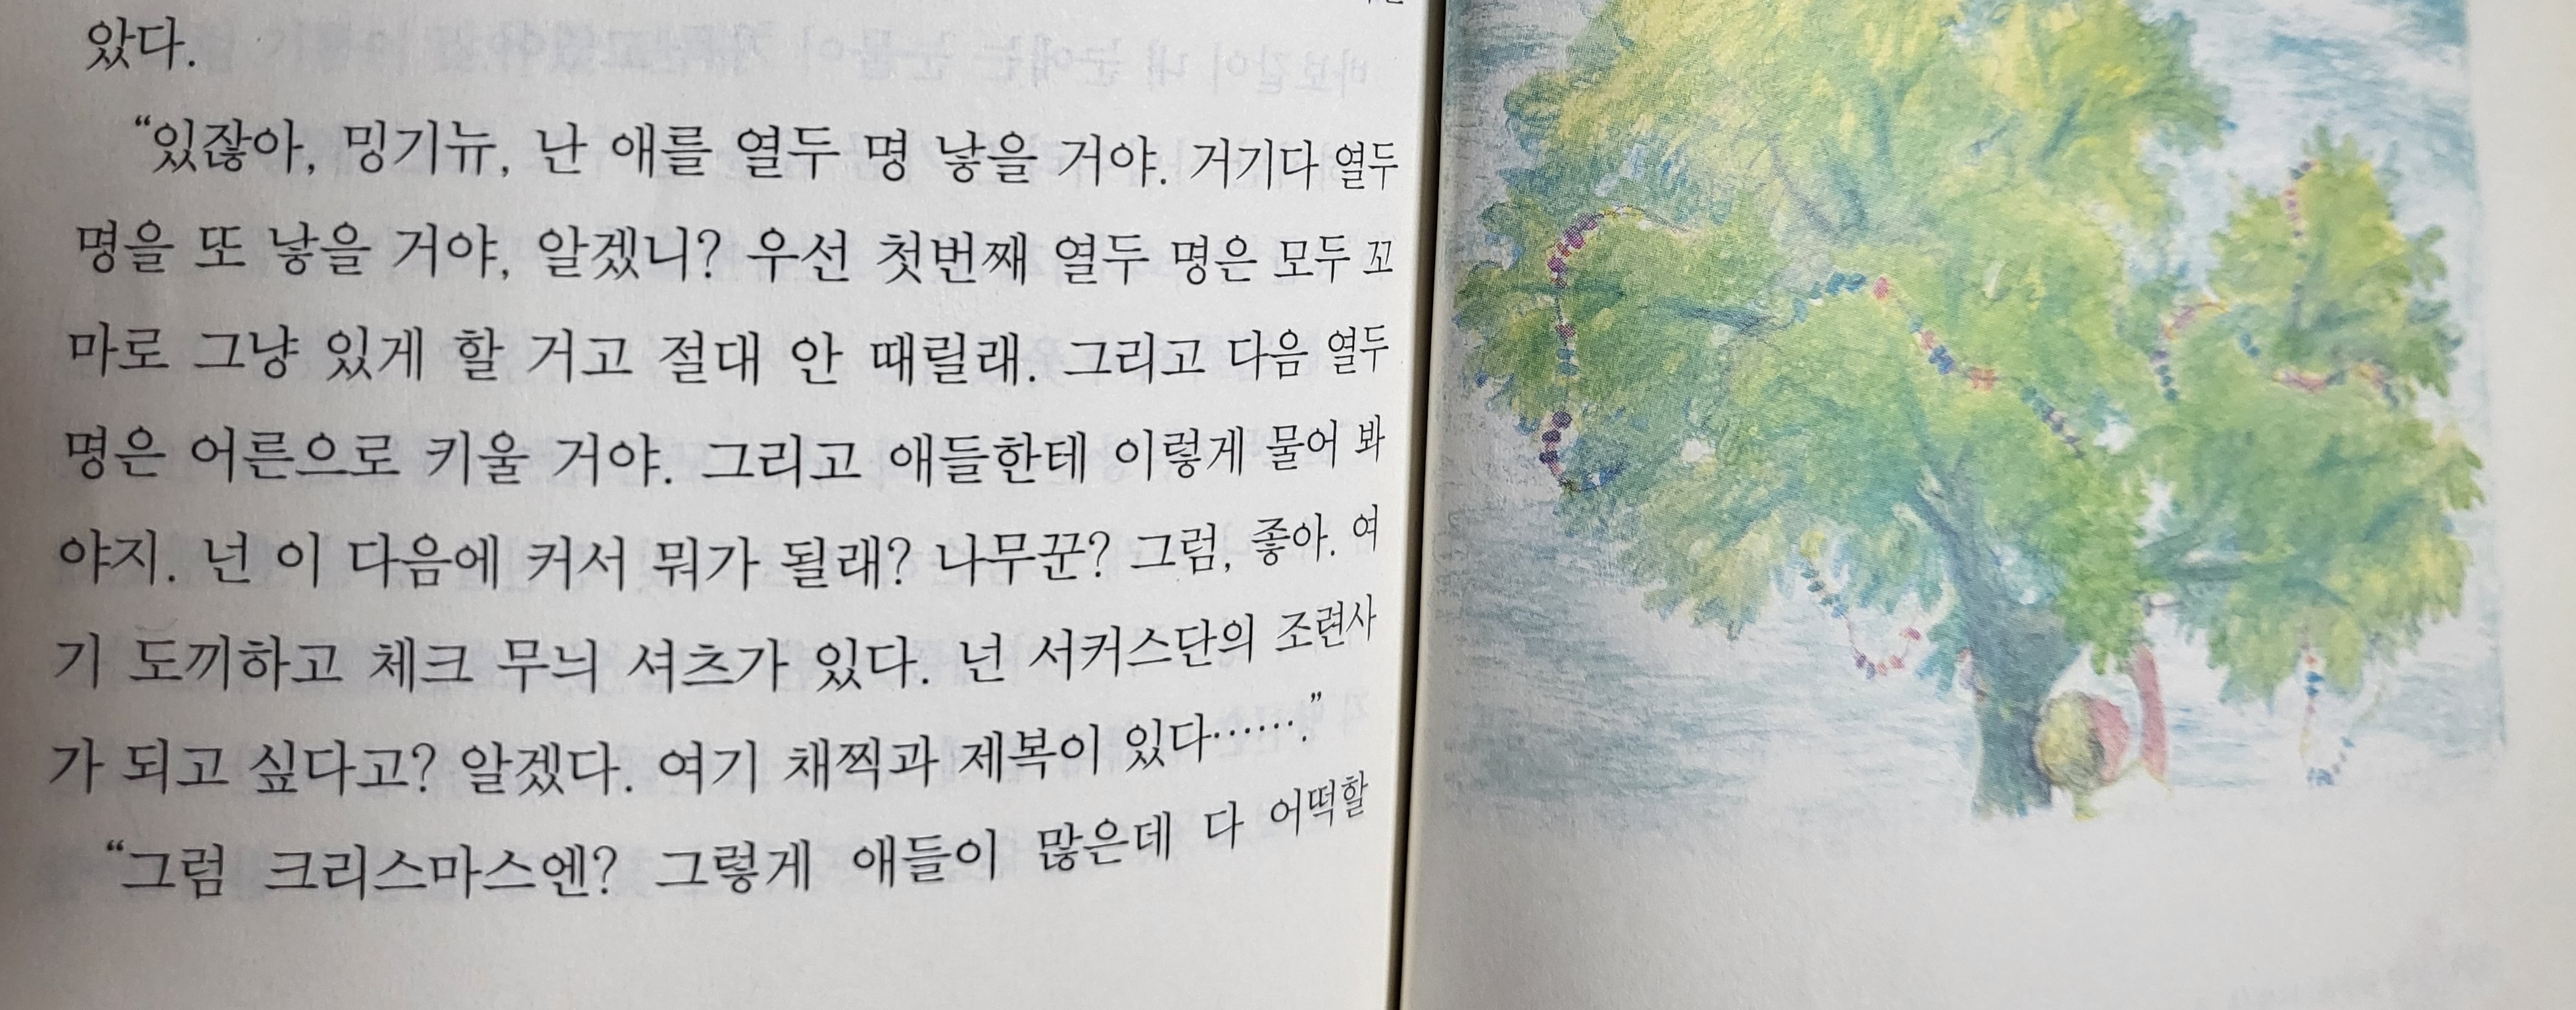 았다.
“있잖아, 밍기뉴, 난 애를 열두 명 낳을 거야. 거기다 열두
명을 또 낳을 거야, 알겠니? 우선 첫번째 열두 명은 모두 꼬
마로 그냥 있게 할 거고 절대 안 때릴래. 그리고 다음 열두
명은 어른으로 키울 거야. 그리고 애들한테 이렇게 물어 봐
야지. 넌 이 다음에 커서 뭐가 될래? 나무꾼? 그럼, 좋아. 여
기 도끼하고 체크 무늬 셔츠가 있다. 넌 서커스단의 조련사
가 되고 싶다고? 알겠다. 여기 채찍과 제복이 있다…….”
“그럼 크리스마스엔? 그렇게 애들이 많은데 다 어떡할